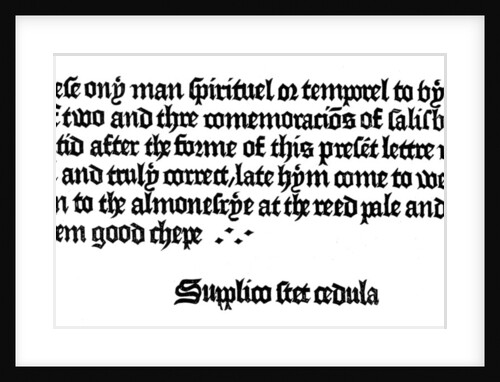 ese ony man spirituel or temporel to bye
two and thre comemoraciōs of salisb
tid after the forme of this presēt lettre
and truly correct, late hym come to we
n to the almonesrye at the reed pale and
em good chepe
Supplico stet cedula